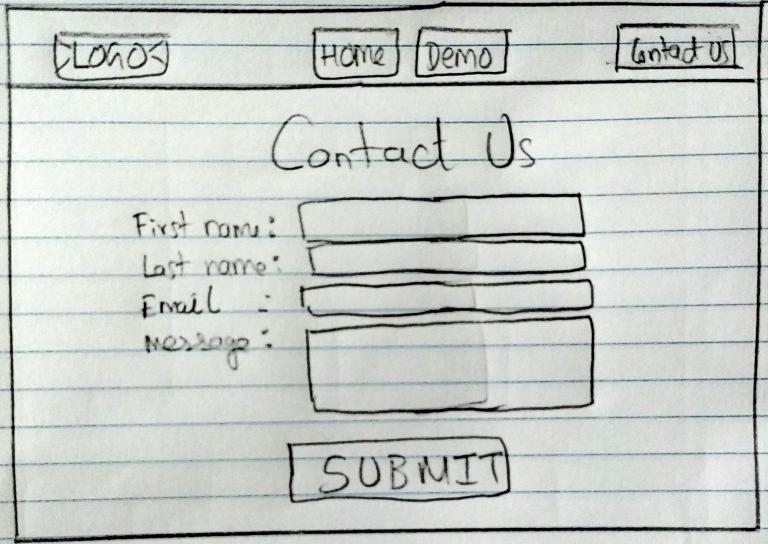 LOGO Home Demo Contact Us
Contact Us
First name:
Last name:
Email :
Message:
SUBMIT